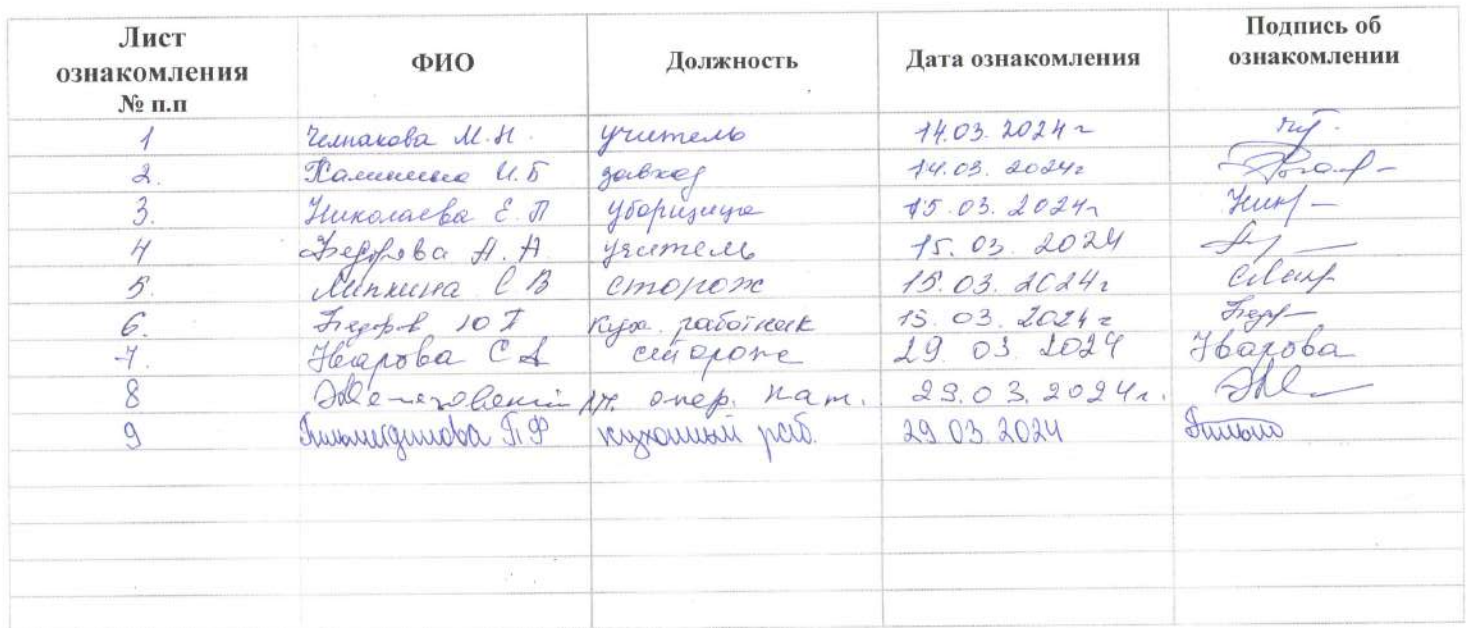 Лист ознакомления № п.п ФИО Должность Дата ознакомления Подпись об ознакомлении
1 Челпакова М.Н. учитель 14.03.2024г
2. Калинина И.Б завхоз 14.03.2024г
3. Николаева Е.П уборщица 15.03.2024г
4 Федорова А.А. учитель 15.03.2024
5. Липкина С В сторож 15.03.2024г
6. Федоров Ю П кух. работник 15.03.2024г
7. Уварова С А сторож 29.03.2024 Уварова
8 опер. 29.03.2024г.
9 П Ф кухонный раб. 29.03.2024